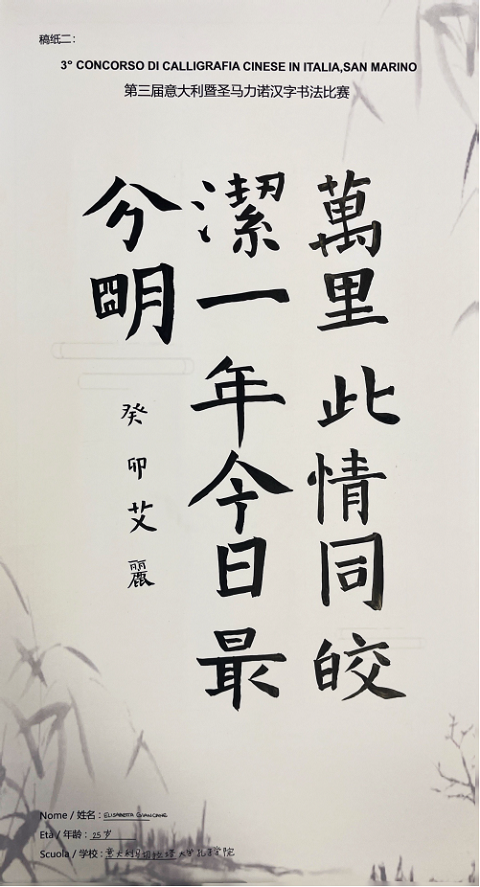 稿纸二:
3° CONCORSO DI CALLIGRAFIA CINESE IN ITALIA,SAN MARINO
第三届意大利暨圣马力诺汉字书法比赛
萬里此情同皎
潔一年今日最
分明
癸卯艾麗
Nome / 姓名: ELISABETTA GIANCANE
Età / 年龄: 25岁
Scuola / 学校: 意大利 大学孔子学院